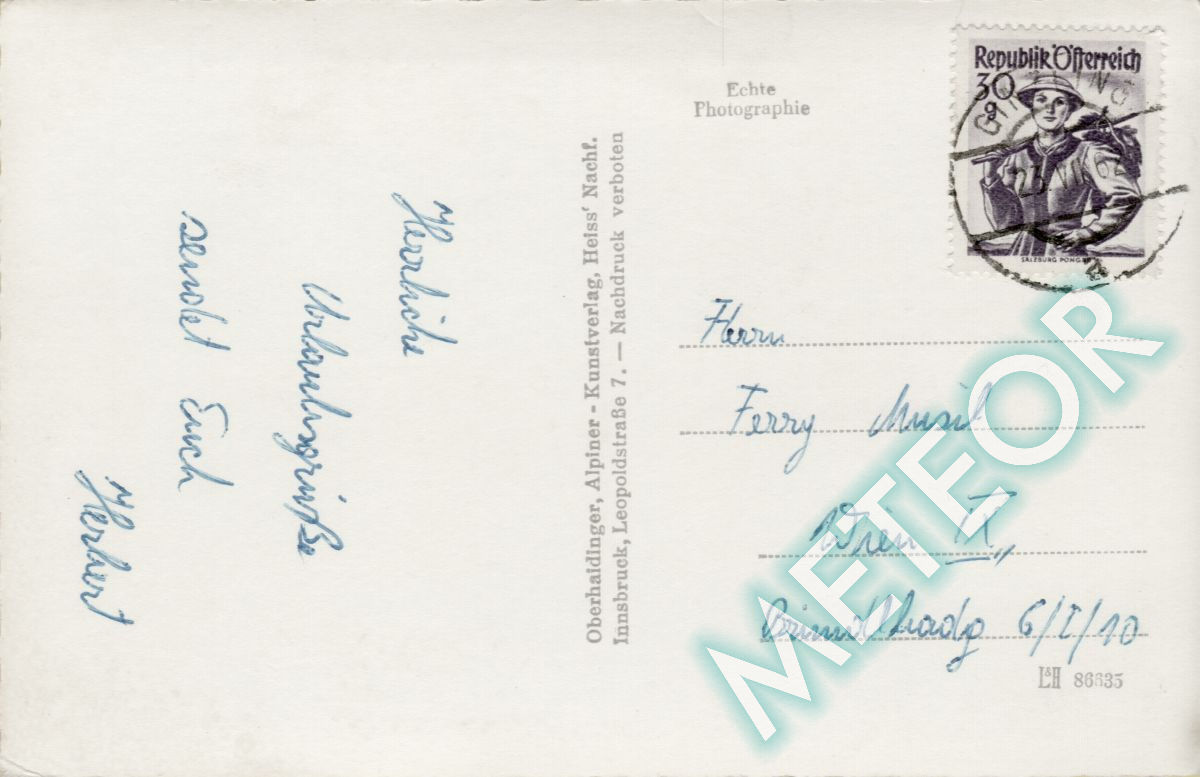 Herrliche
Urlaubsgrüße
sendet Euch
Herbert
Oberhaidinger, Alpiner - Kunstverlag, Heiss' Nachf.
Innsbruck, Leopoldstraße 7. — Nachdruck verboten
Echte
Photographie
Republik Österreich
30
g
SALZBURG PONGAU
Herrn
Ferry Musil
Wien IX
6/I/10
L&H 86635
METEOR